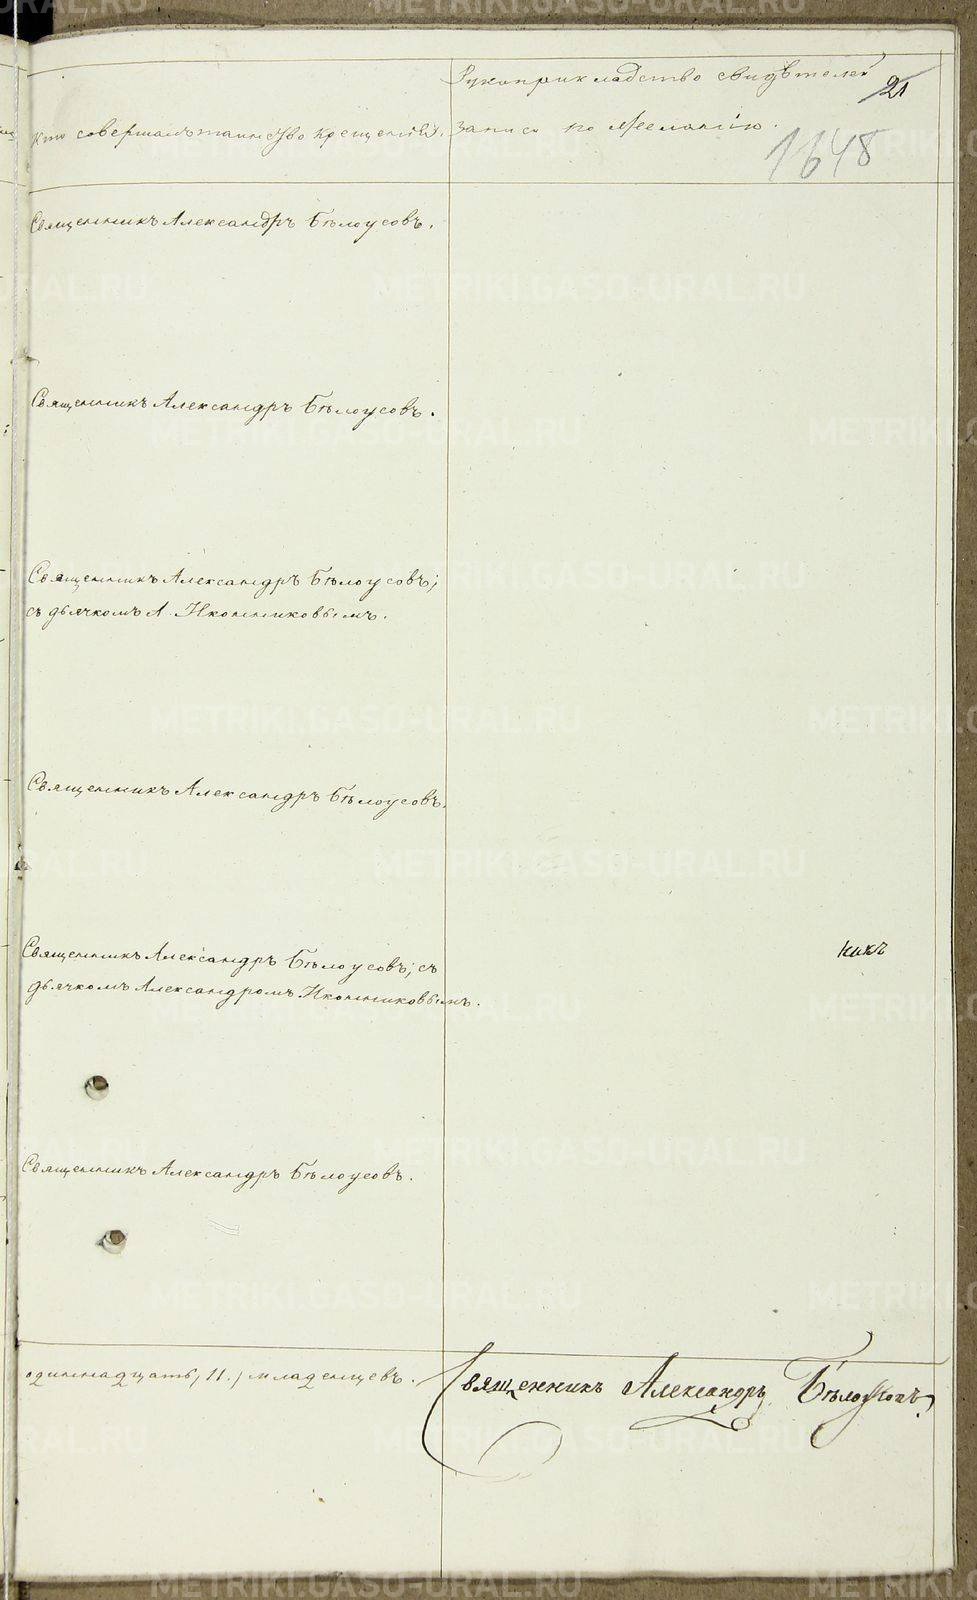 Рукоприкладство свидѣтелей
21
Кто совершалъ таинство крещенія.
записи по желанію.
1648
Священникъ Александръ Бѣлоусовъ.
Священникъ Александръ Бѣлоусовъ.
Священникъ Александръ Бѣлоусовъ;
съ дьячкомъ А. Иконниковымъ.
Священникъ Александръ Бѣлоусовъ.
Священникъ Александръ Бѣлоусовъ; съ
дьячкомъ Александромъ Иконниковымъ.
никъ
Священникъ Александръ Бѣлоусовъ.
одиннадцать, 11, младенцевъ.
Священникъ Александръ Бѣлоусовъ
METRIKI.GASO-URAL.RU